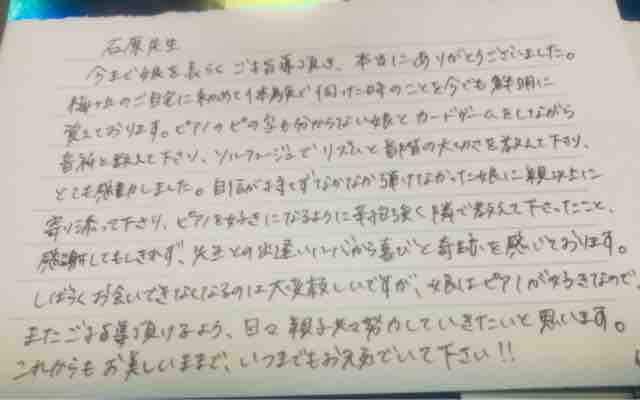 石原先生
今まで娘を長らくご指導頂き、本当にありがとうございました。
梅ヶ丘のご自宅に初めて体験で伺った時のことを今でも鮮明に
覚えております。ピアノのピの字も分からない娘とカードゲームをしながら
音符を教えて下さり、ソルフェージュでリズムと音階の大切さを教えて下り、
とても感動しました。自信が持てずなかなか弾けなかった娘に親以上に
寄り添って下さり、ピアノを好きになるように辛抱強く隣で教えて下さったこと、
感謝してもしきれず、先生との出逢いに心から喜びと奇跡を感じております。
しばらくお会いできなくなるのは大変寂しいですが、娘はピアノが好きなので、
またご指導頂けるよう、日々親子共々努力していきたいと思います。
これからもお美しいままで、いつまでもお元気でいて下さい!!